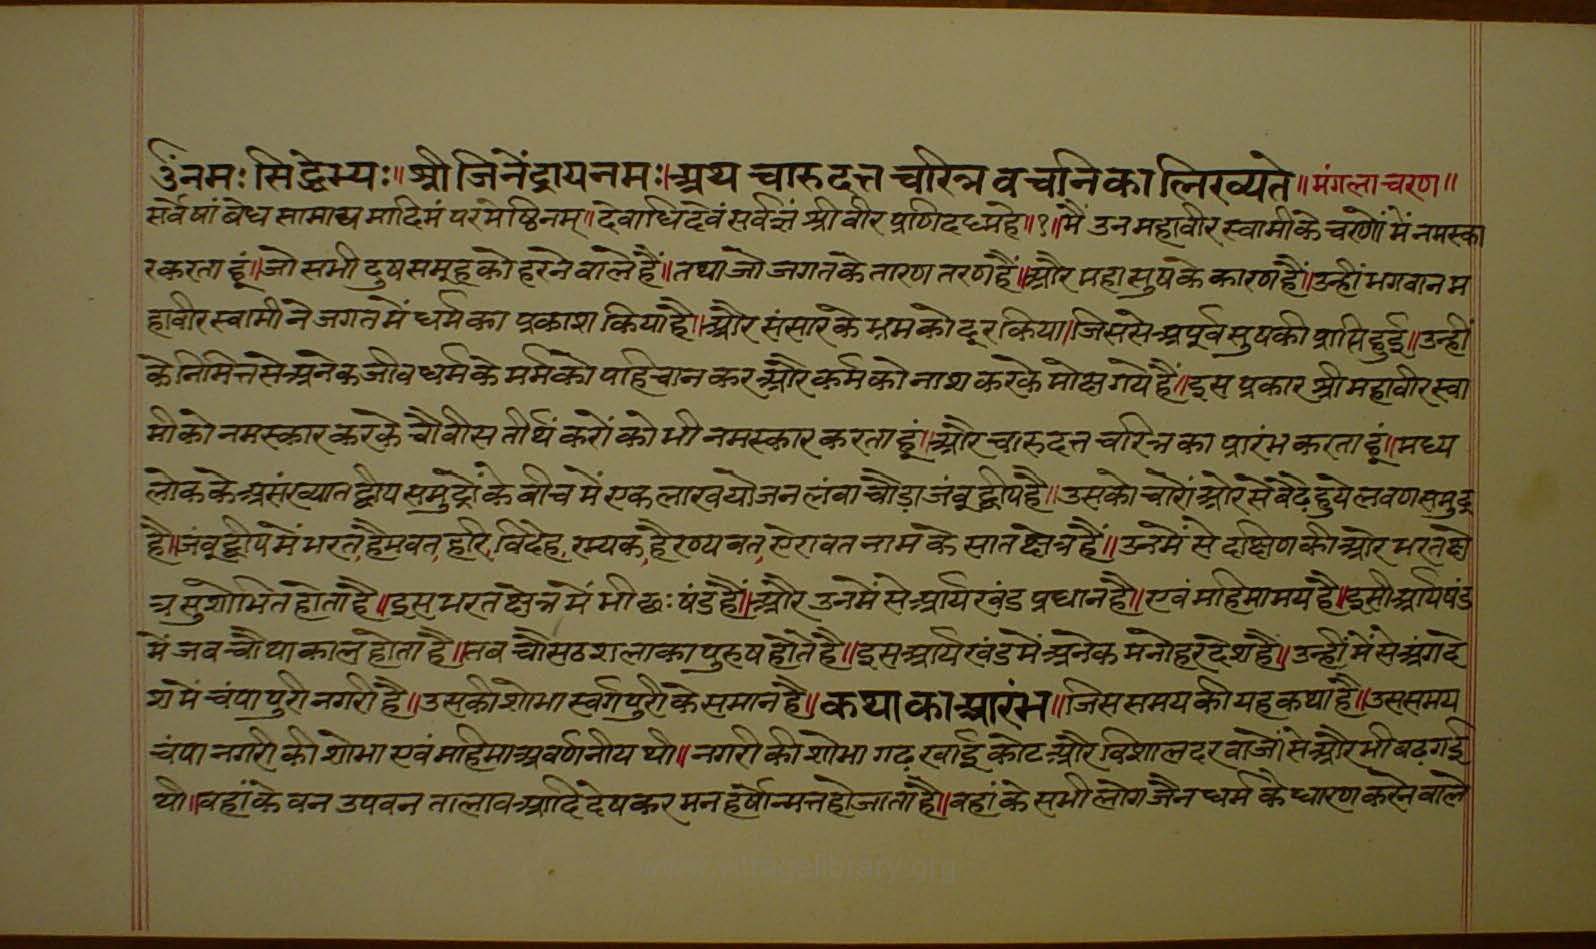 ॐनमः सिद्धेभ्यः॥ श्री जिनेंद्रायनमः। अथ चारुदत्त चरित्र वचनिका लिख्यते॥ मंगलाचरण॥
सर्वेषां बेध सामाद्य मादिमं परमेष्ठिनम्॥ देवाधिदेवं सर्वज्ञं श्री वीर प्रणिदध्महे॥१॥ मैं उन महावीर स्वामी के चरणों में नमस्का
र करता हूं॥ जो सभी दुष समूह को हरने वाले हैं॥ तथा जो जगत के तारण तरण हैं॥ और महा सुष के कारण हैं॥ उन्हीं भगवान म
हावीर स्वामी ने जगत में धर्म का प्रकाश किया है॥ और संसार के भ्रम को दूर किया॥ जिससे अपूर्व सुष की प्राप्ति हुई॥ उन्हीं
के निमित्त से अनेक जीव धर्म के मर्म को पहिचान कर और कर्म को नाश करके मोक्ष गये हैं॥ इस प्रकार श्री महावीर स्वा
मी को नमस्कार करके चौवीस तीर्थंकरों को भी नमस्कार करता हूं॥ और चारुदत्त चरित्र का प्रारंभ करता हूं॥ मध्य
लोक के असंख्यात द्वीप समुद्रों के वीच में एक लाख योजन लंवा चौड़ा जंवूद्वीप है॥ उसको चारों ओर से वेढ़े हुये लवण समुद्र
है॥ जंवूद्वीप में भरत, हैमवत, हरि, विदेह, रम्यक, हैरण्यवत, ऐरावत नाम के सात क्षेत्र हैं॥ उनमें से दक्षिण की ओर भरत क्षे
त्र सुशोभित होता है॥ इस भरत क्षेत्र में भी छः षंड हैं॥ और उनमें से आर्य खंड प्रधान है॥ एवं महिमामय है॥ इसी आर्य षंड
में जव चौथा काल होता है॥ तव चौसठ शलाका पुरुष होते है॥ इस आर्य खंड में अनेक मनोहर देश हैं॥ उन्हीं में से अंग दे
श में चंपापुरी नगरी है॥ उसकी शोभा स्वर्गपुरी के समान है॥ कथा का प्रारंभ॥ जिस समय की यह कथा है॥ उस समय
चंपा नगरी की शोभा एवं महिमा अवर्णनीय थी॥ नगरी की शोभा गढ़ खाई कोट और विशाल दरवाजों से और भी बढ़ गई
थी॥ वहां के वन उपवन तालाव आदि देषकर मन हर्षोन्मत्त हो जाता है॥ वहां के सभी लोग जैन धर्म के धारण करने वाले
www.vitragelibrary.org